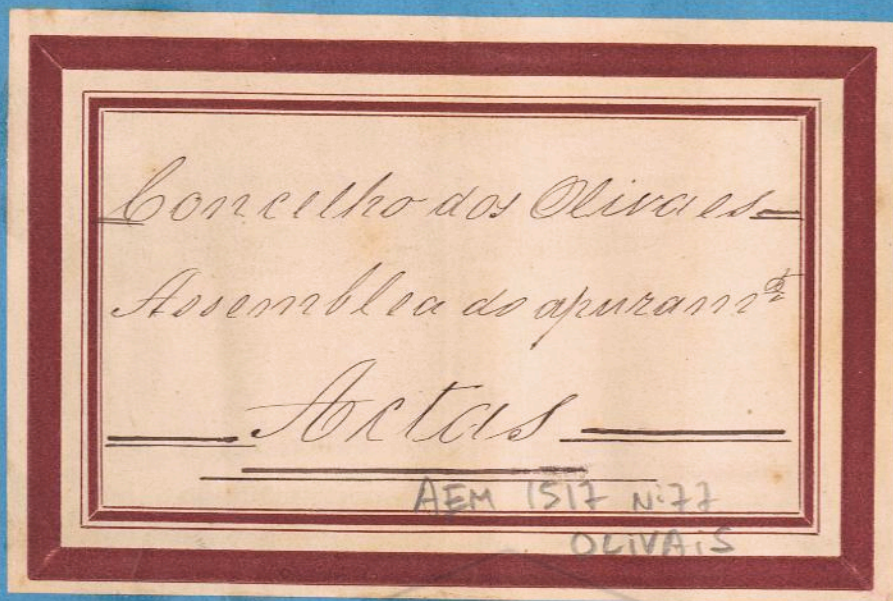 Concelho dos Olivaes
Assemblea do apuramto
Actas
AEM 1517 Nº 77
OLIVAIS